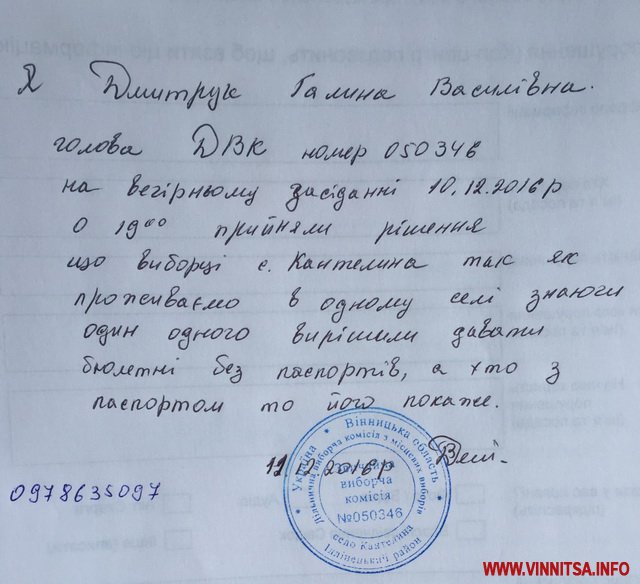 Я Дмитрук Галина Василівна.
голова ДВК номер 050346
на вечірньому засіданні 10.12.2016р
о 19⁰⁰ прийняли рішення
що виборці с. Кантелина так як
проживаємо в одному селі знаючи
один одного вирішили давати
бюлетні без паспортів, а хто з
паспортом то його покаже.
11.12.2016р
0978635097
Україна * Вінницька область *
Дільнична виборча комісія з місцевих виборів
виборча
комісія
№050346
село Кантелина
Іллінецький район
WWW.VINNITSA.INFO